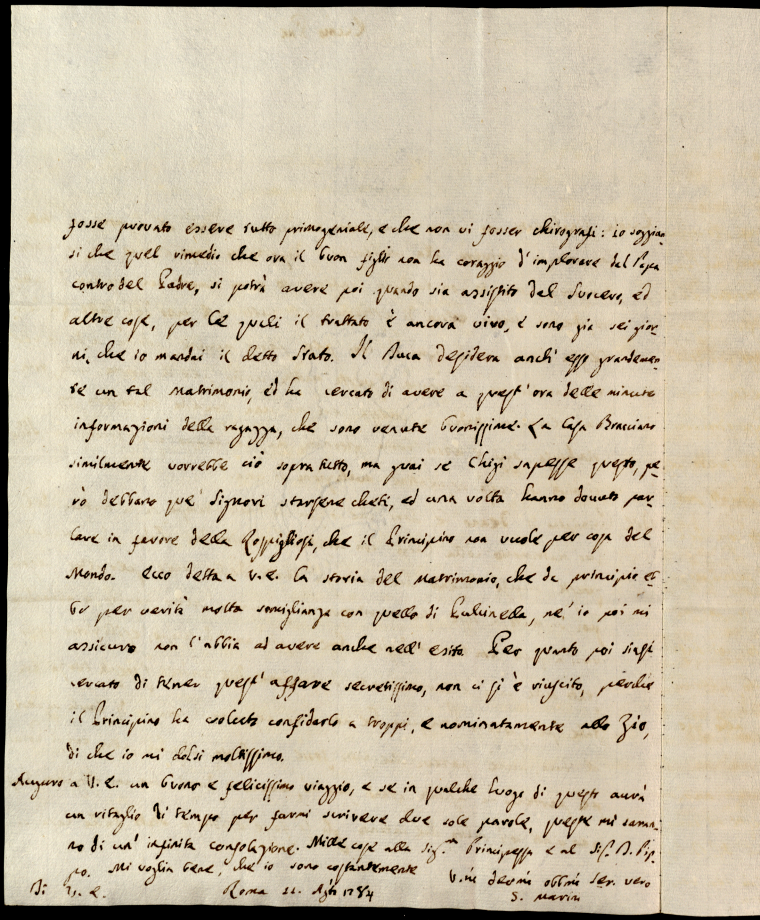 fosse provato essere tutto primogeniale, e che non vi fosser chirografi: io soggiun-
si che quel rimedio che ora il buon figlio non ha coraggio d'implorare dal Papa
contro del Padre, si potrà avere poi quando sia assistito dal Suocero, ed
altre cose, per le quali il trattato è ancora vivo, e sono già sei gior-
ni, che io mandai il detto Stato. Il Duca desidera anch'esso grandemen-
te un tal Matrimonio, ed ha cercato di avere a quest'ora delle minute
informazioni della ragazza, che sono venute buonissime. La Casa Bracciano
similmente vorrebbe ciò sopra tutto, ma guai se Chigi sapesse questo, pe-
rò debbano que' Signori starsene cheti, ed una volta hanno dovuto par-
lare in favore della Rospigliosi, che il Principino non vuole per cosa del
Mondo. Ecco detta a V. E. la storia del Matrimonio, che da principio eb-
be per verità molta somiglianza con quello di Pulcinella, ne' io poi mi
assicuro non l'abbia ad avere anche nell'esito. Per quanto poi siasi
cercato di tener quest'affare secretissimo, non ci si è riuscito, perché
il Principino ha voluto confidarlo a troppi, e nominatamente allo Zio,
di che io mi dolsi moltissimo.
Auguro a V. E. un buono e felicissimo viaggio, e se in qualche luogo di questo avrà
un ritaglio di tempo per farmi scrivere due sole parole, queste mi saran-
no di un'infinita consolazione. Mille cose alla Sig.ra Principessa e al Sig. D. Pip-
po. Mi voglia bene, che io sono costantemente
Di V. E. Roma 21. Ag. 1784 U.mo devmo obbmo ser. vero
S. Marini